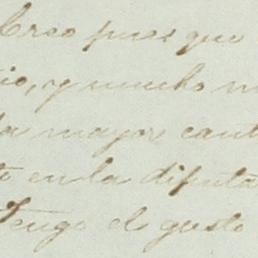 Creo pues que
io, y mucho m
la mayor cant
to en la diputa
Tengo el gusto